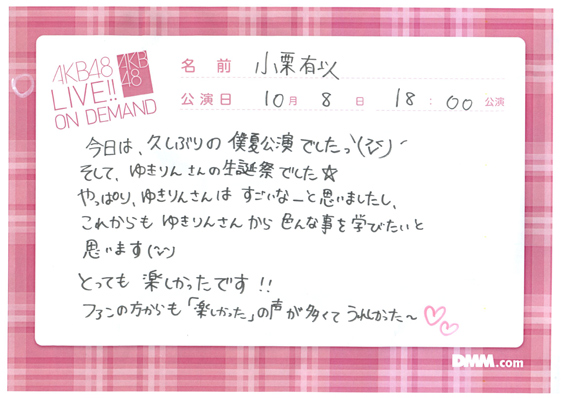 AKB48
LIVE!!
ON DEMAND
AKB
48
名前 小栗有以
公演日 10月 8日 18:00 公演
今日は、久しぶりの僕夏公演でしたっ\(^^)/
そして、ゆきりんさんの生誕祭でした☆
やっぱり、ゆきりんさんは すごいなーと思いましたし、
これからも ゆきりんさんから 色んな事を学びたいと
思います(^^)
とっても 楽しかったです!!
ファンの方からも「楽しかった」の声が多くて うれしかった〜♡♡
DMM.com